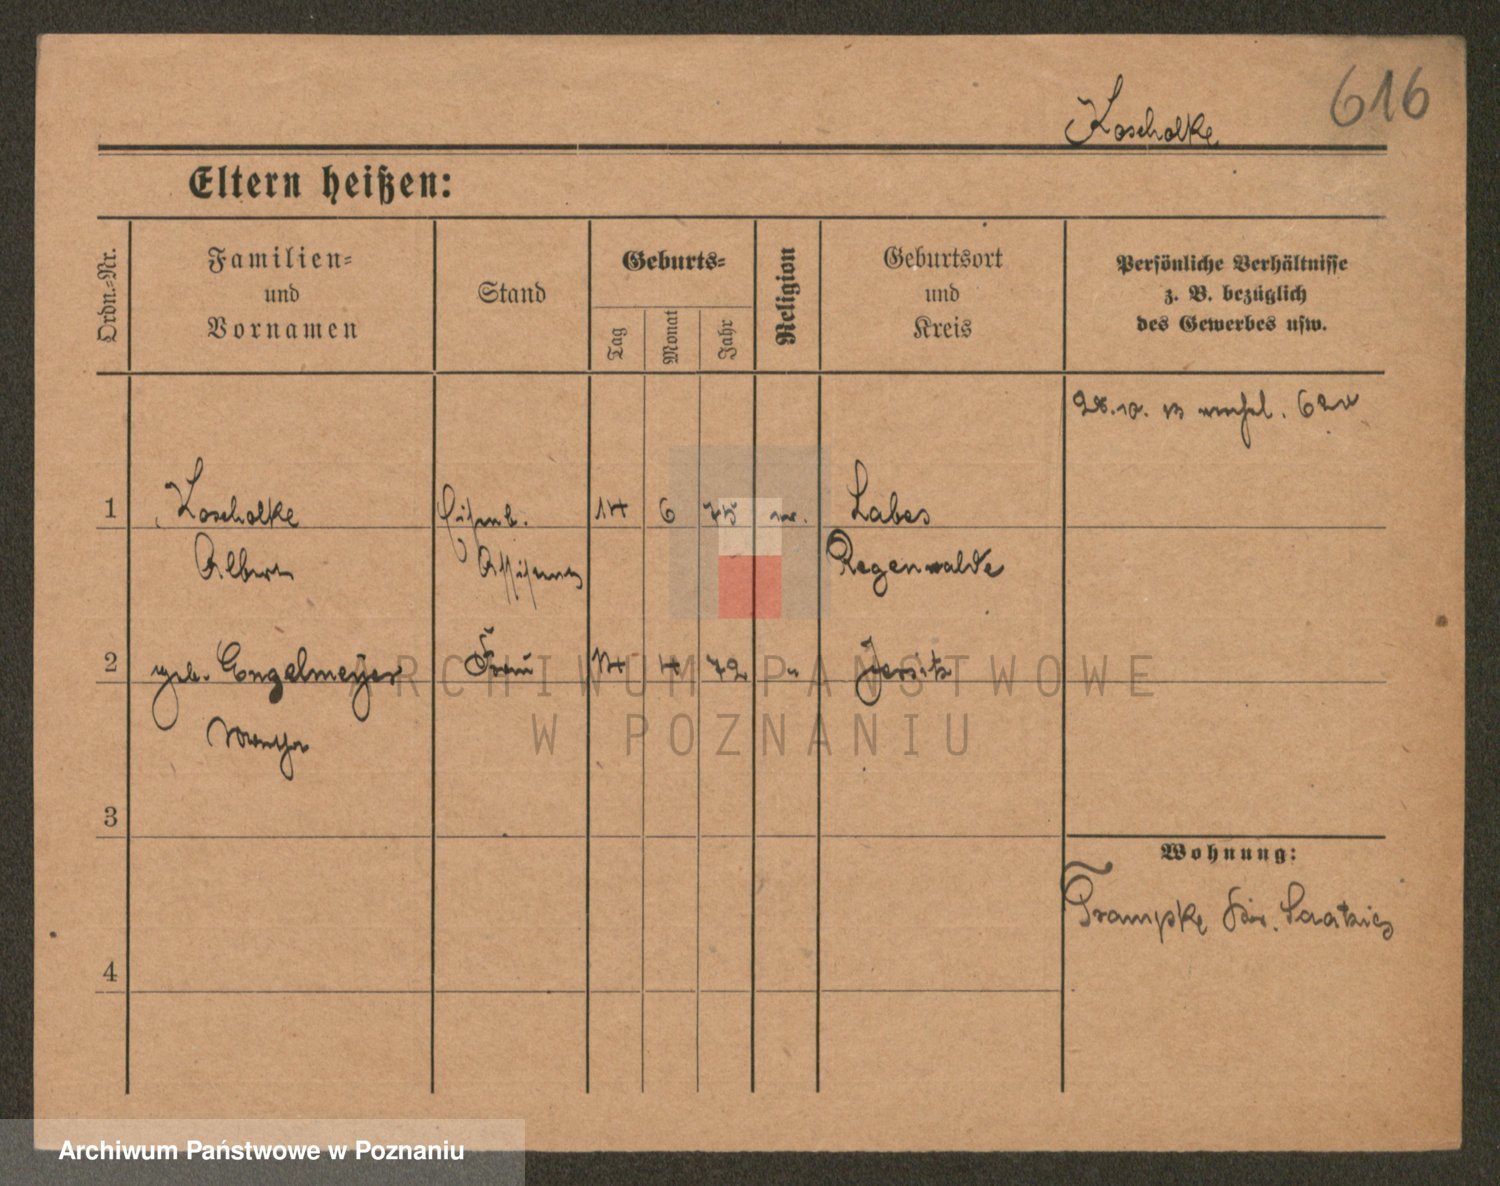 616
Koscholke
Eltern heißen:
Ordn.-Nr.
Familien-
und
Vornamen
Stand
Geburts-
Tag
Monat
Jahr
Religion
Geburtsort
und
Kreis
Persönliche Verhältnisse
z. B. bezüglich
des Gewerbes usw.
28.10.13
1 Koscholke Eisenb. 14 6 75 Labes
Albert Assistent Regenwalde
2 geb. Engelmeyer Frau 14 4 72 " Jersitz
3
Wohnung:
Trampke Kr. Saatzig
4
ARCHIWUM PAŃSTWOWE
W POZNANIU
Archiwum Państwowe w Poznaniu